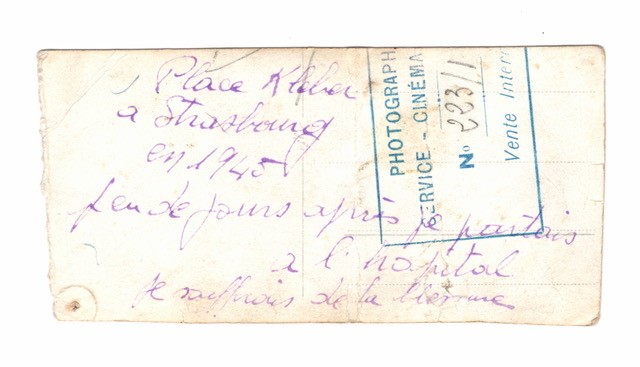 Place Kléber
a Strasbourg
en 1945
peu de jours après je partais
a l'hopital
Je souffrais de la
PHOTOGRAPH
SERVICE - CINÉMA
N° 223/1
Vente Inter